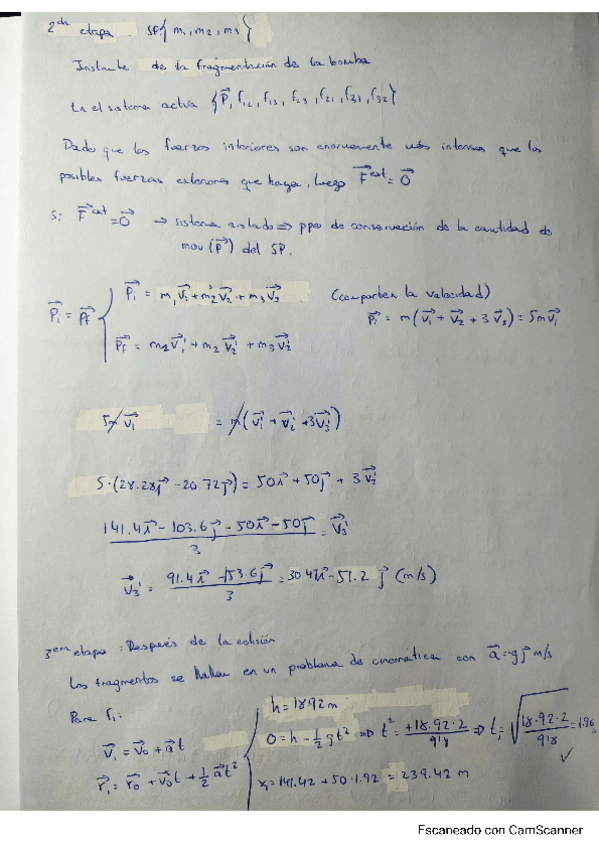 2da etapa. SP{m1, m2, m3}
Instante de la fragmentación de la bomba
En el sistema actúa {P⃗, f12, f13, f23, f21, f31, f32}
Dado que las fuerzas interiores son enormemente más intensas que las
posibles fuerzas exteriores que haya, luego F⃗ext = 0⃗
Si F⃗ext = 0⃗ → sistema aislado ⇒ ppo de conservación de la cantidad de
mov (P⃗) del SP.
P⃗i = m1v⃗1 + m2v⃗2 + m3v⃗3 (comparten la velocidad)
P⃗i = P⃗f P⃗i = m(v⃗1 + v⃗2 + 3v⃗3) = 5mv⃗i
P⃗f = m2v⃗1' + m2v⃗2' + m3v⃗3'
5mv⃗i = m(v⃗1' + v⃗2' + 3v⃗3')
5·(28.28i⃗ - 20.72j⃗) = 50i⃗ + 50j⃗ + 3v⃗3'
141.4i⃗ - 103.6j⃗ - 50i⃗ - 50j⃗ / 3 = v⃗3'
v⃗3' = 91.4i⃗ - 153.6j⃗ / 3 = 30.47i⃗ - 51.2j⃗ (m/s)
3era etapa: Después de la colisión
Los fragmentos se hallan en un problema de cinemática con a⃗ = -gj⃗ m/s
Para r1: h = 18.92 m
v⃗1 = v⃗0 + a⃗t 0 = h - 1/2 gt² ⇒ t² = +18.92·2 / 9'8 ⇒ t1 = √(18.92·2 / 9'8) = 1.96 s
r⃗1 = r⃗0 + v⃗0t + 1/2 a⃗t² x1 = 141.42 + 50·1.92 = 239.42 m
Escaneado con CamScanner